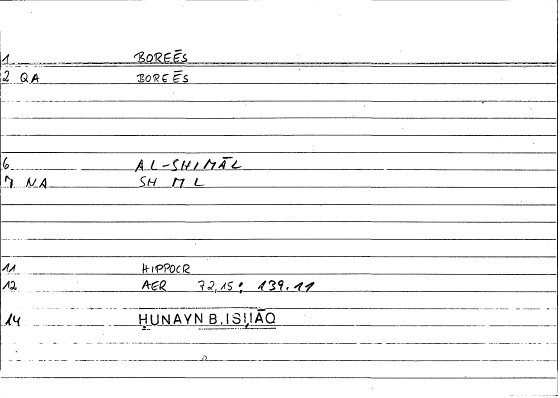 1 BOREĒS
2 QA BOREĒS
6 AL-SHIMĀL
7 NA SH M L
11 HIPPOCR
12 AER 72,15: 139.11
14 ḤUNAYN B. ISḤĀQ